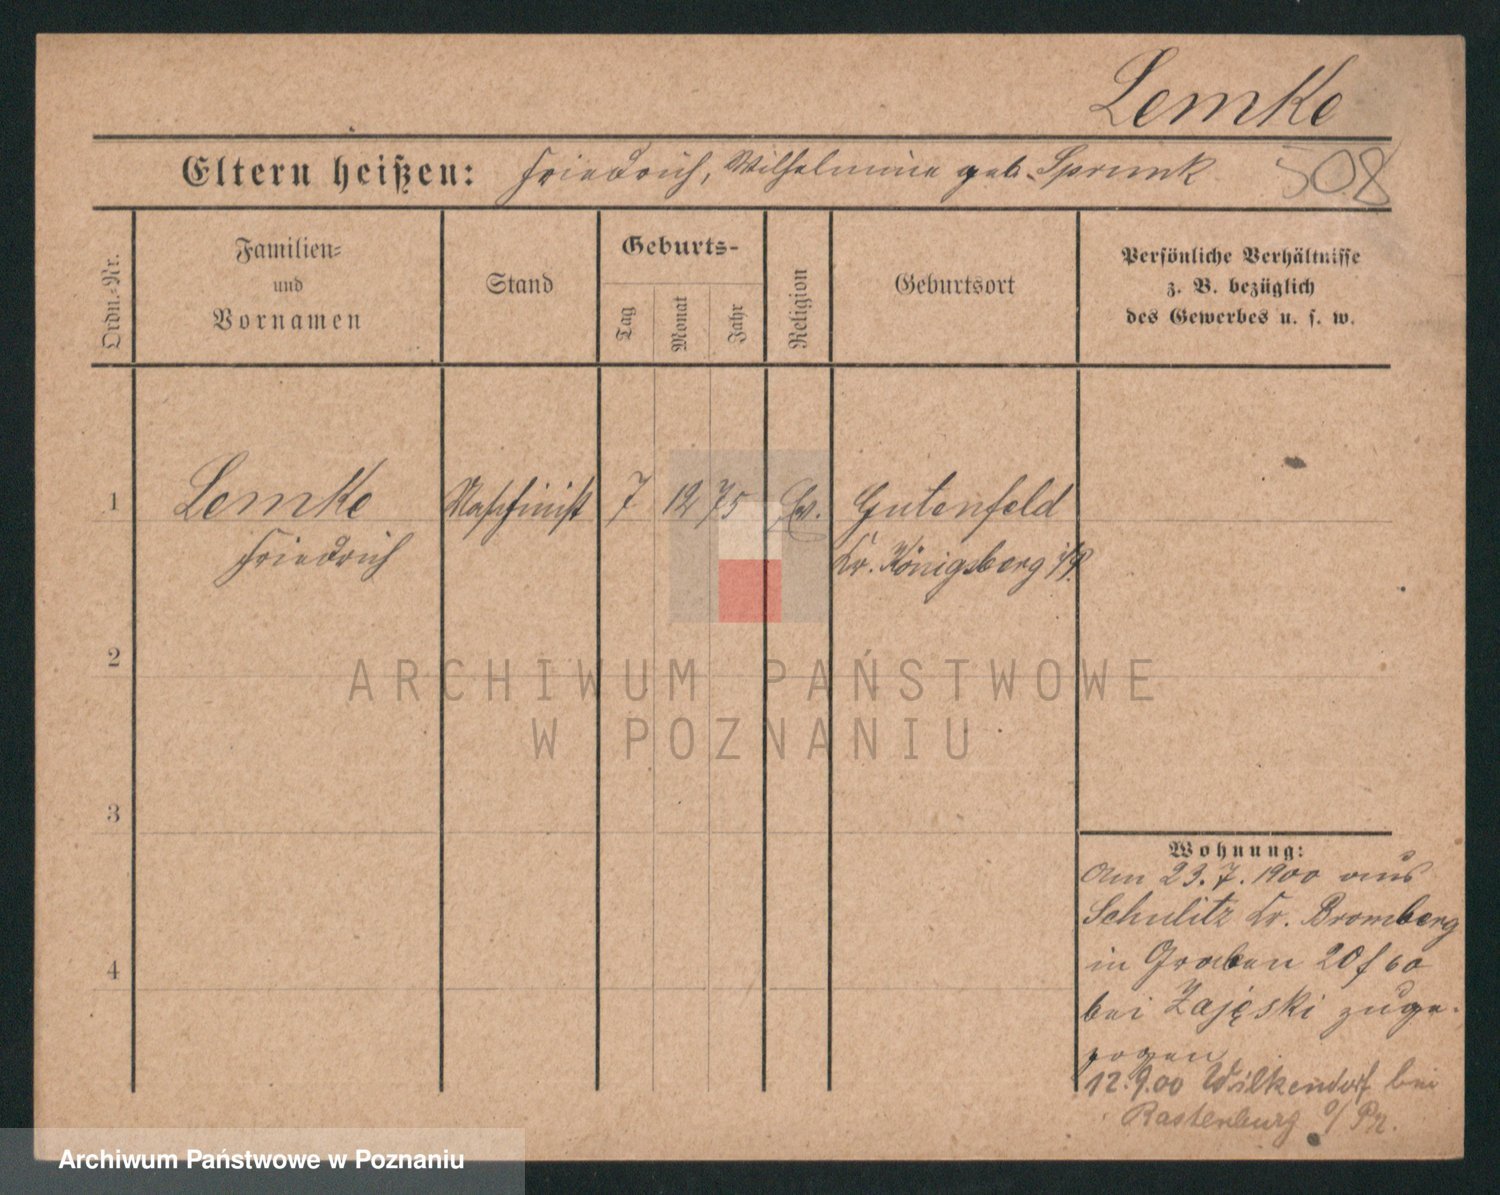 Lemke
Eltern heißen: Friedrich, Wilhelmine geb. Sprunk 508
Ordn.-Nr.
Familien-
und
Vornamen
Stand
Geburts-
Tag
Monat
Jahr
Religion
Geburtsort
Persönliche Verhältnisse
z. B. bezüglich
des Gewerbes u. s. w.
1 Lemke Maschinist 7 12 75 Ev. Gutenfeld
Friedrich Kr. Königsberg i/P.
2
ARCHIWUM PAŃSTWOWE
W POZNANIU
3
Wohnung:
Am 23.7.1900 aus
Schulitz Kr. Bromberg
4
in Graben 20 f 60
bei Zajęski zuge-
zogen
12.9.00 Wilkendorf bei
Rastenburg O/Pr.
Archiwum Państwowe w Poznaniu